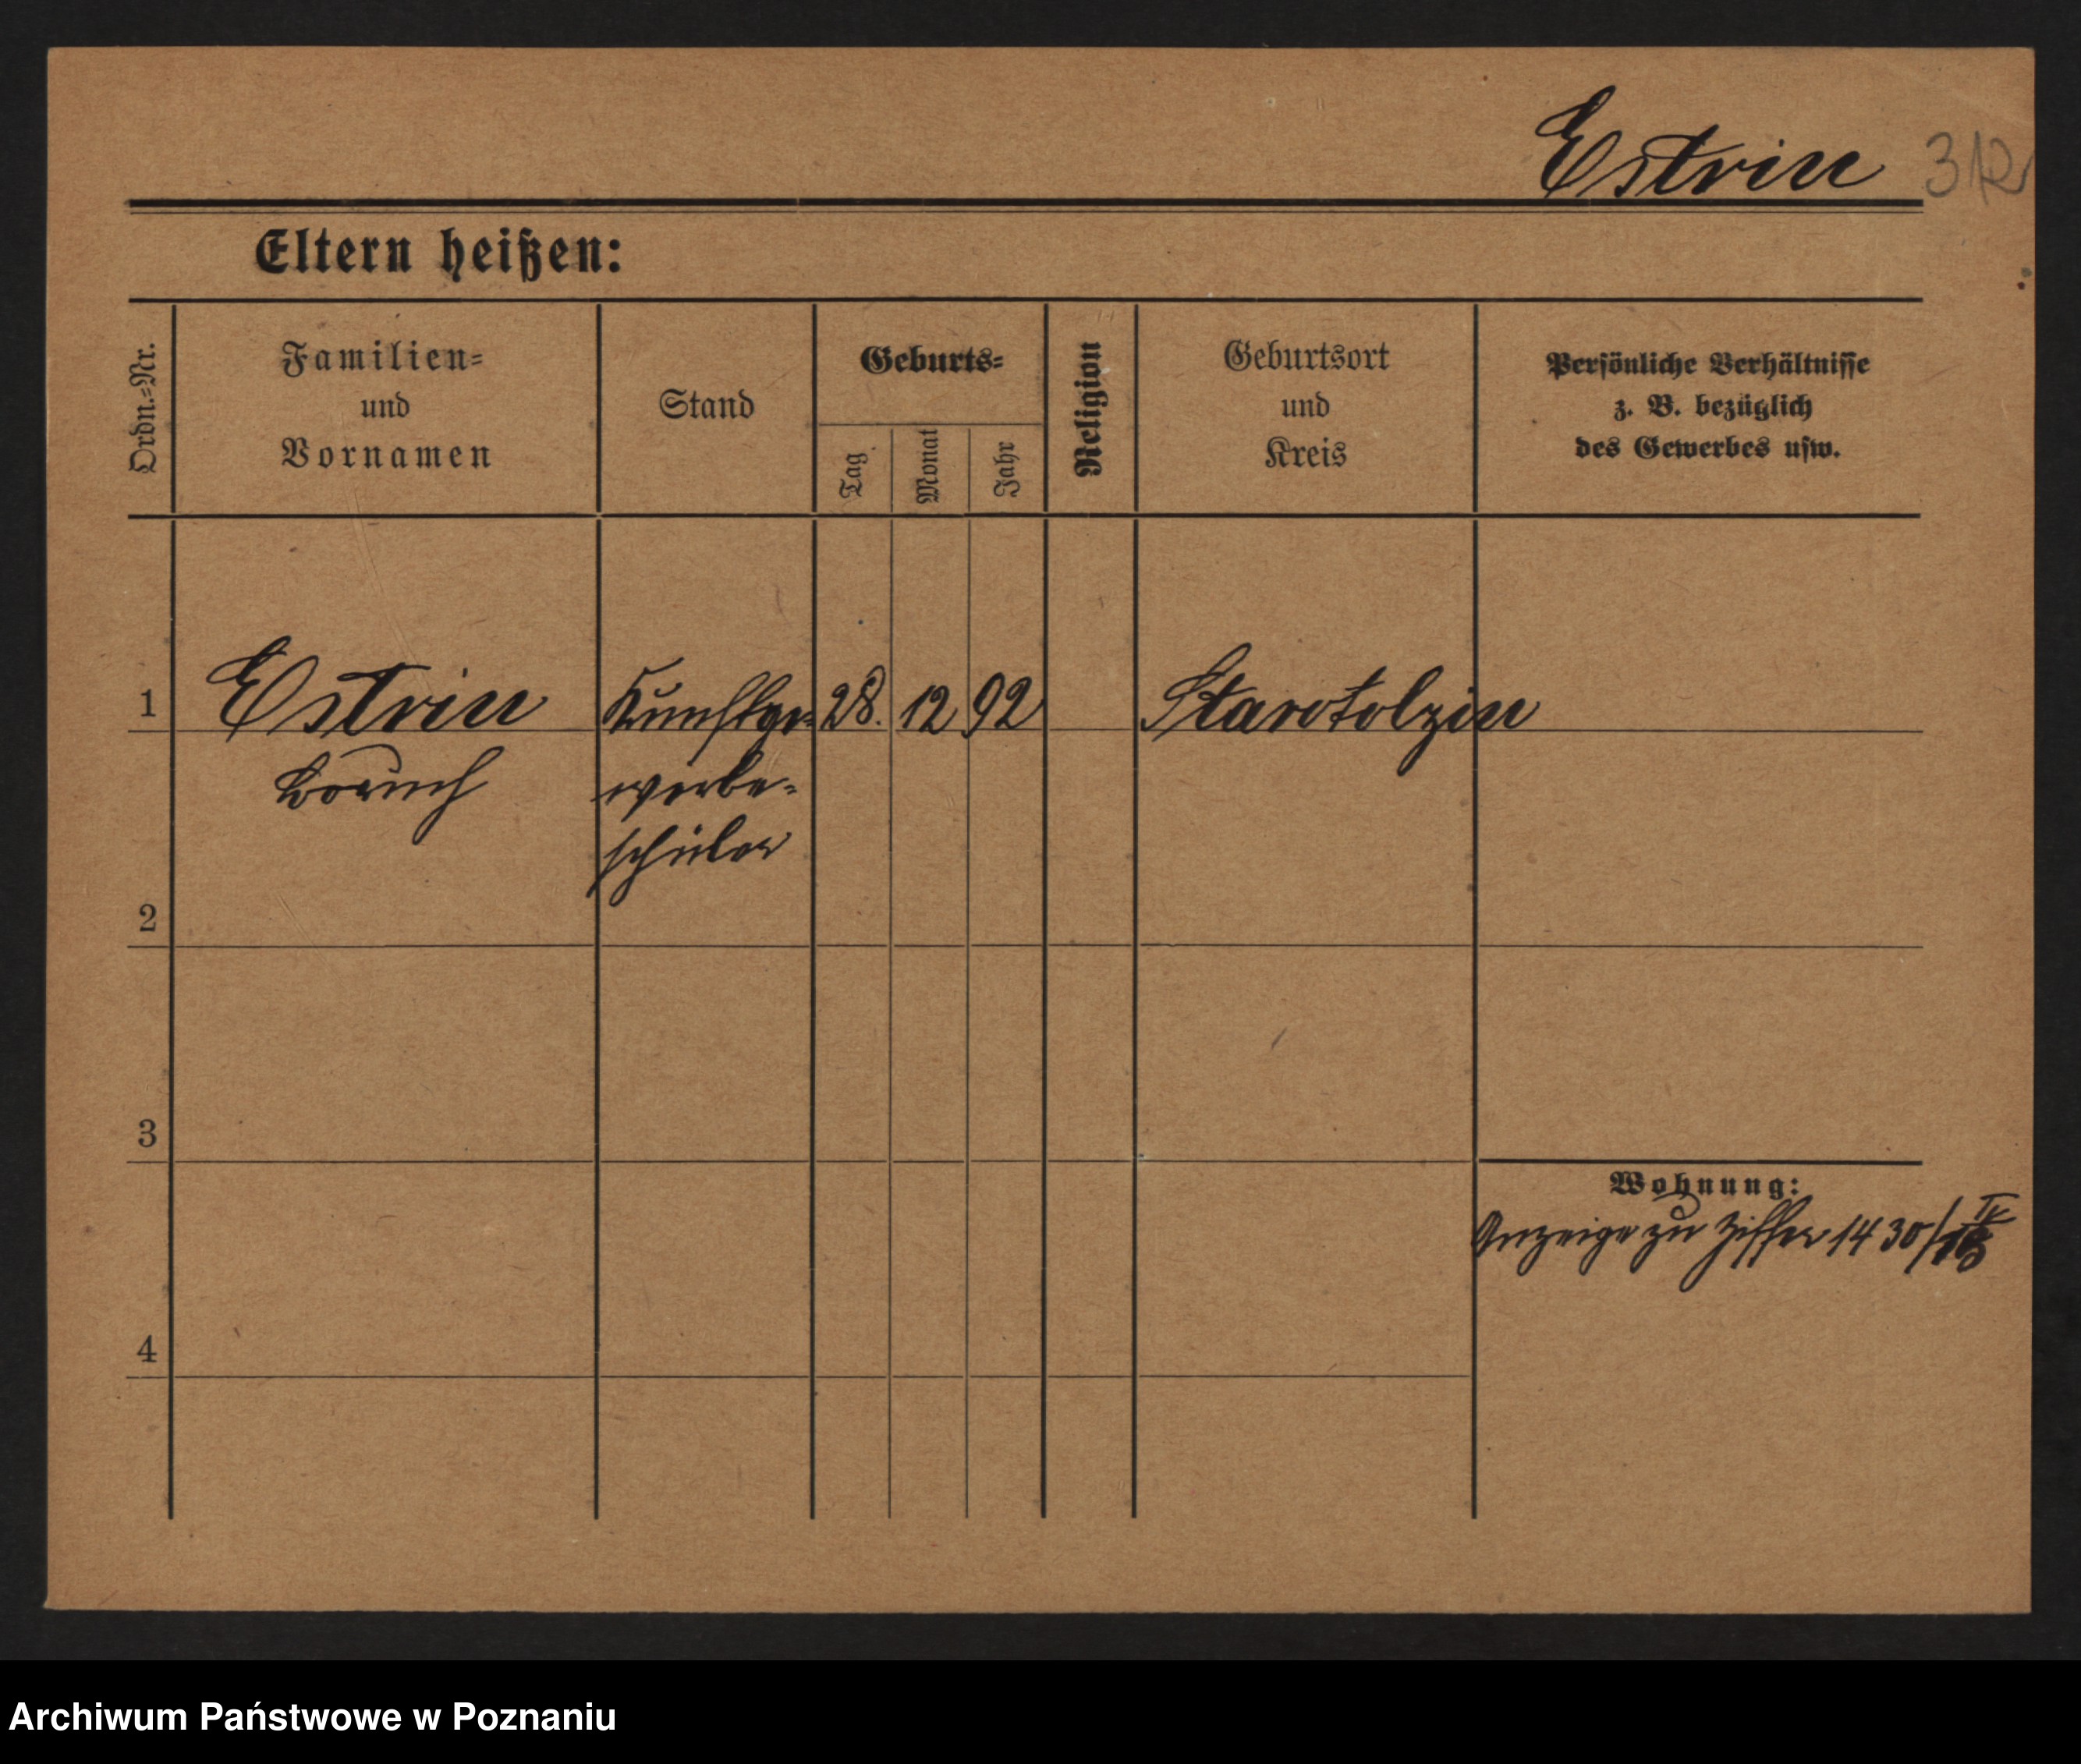 Estrin 312
Eltern heißen:
Ordn.=Nr.
Familien=
und
Vornamen
Stand
Geburts=
Tag
Monat
Jahr
Religion
Geburtsort
und
Kreis
Persönliche Verhältnisse
z. B. bezüglich
des Gewerbes usw.
1 Estrin Kunstge= 28. 12 92 Starotolzin
Boruch werbe=
schüler
2
3
Wohnung:
Anzeige zu Ziffer 14 30/IV
4
Archiwum Państwowe w Poznaniu